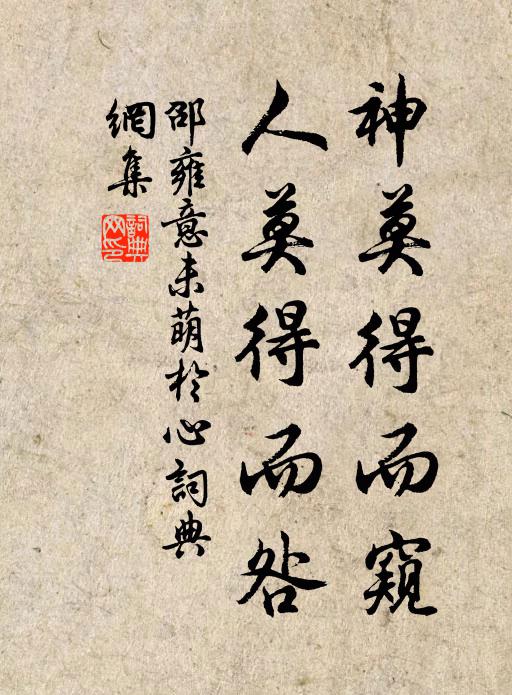 神莫得而窺
人莫得而咎
邵雍意未萌於心詞典
網集
詞典
网印